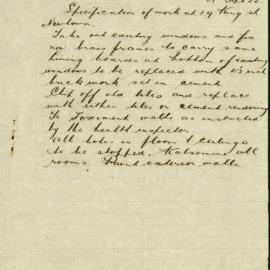 Specification of work at 19 King St
Newtown.
Take out existing windows and fix
new brass frames to carry same
lining boards at bottom of existing
windows to be replaced with 4½ inch
brick work set in cement
Chip off old tiles and replace
with either tiles or cement rendering
To basement walls as instructed
by the health inspector.
All holes in floors & ceilings
to be stopped. Kalsomine all
rooms. Paint exterior walls